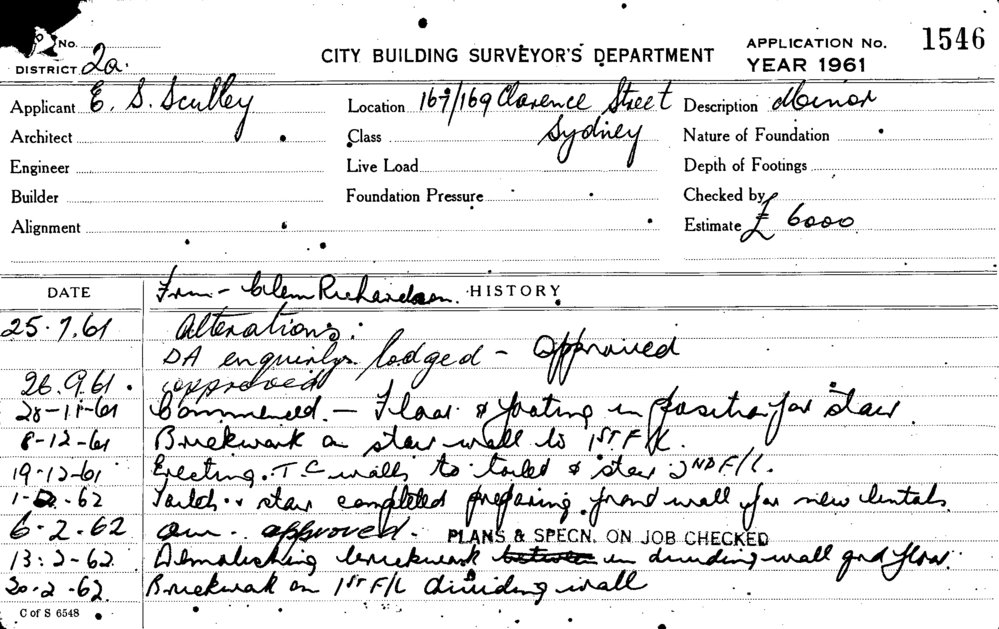 No.
DISTRICT 2a.
CITY BUILDING SURVEYOR'S DEPARTMENT
APPLICATION No. 1546
YEAR 1961
Applicant E. S. Sculley
Location 167/169 Clarence Street
Sydney
Description Minor
Architect
Class
Nature of Foundation
Engineer
Live Load
Depth of Footings
Builder
Foundation Pressure
Checked by
Alignment
Estimate £ 6000
DATE
From - Clem Richardson. HISTORY
Alterations:
DA enquiry lodged - Approved
26.9.61. approved
28-11-61 Commenced. - Floor & footing in position for stair
8-12-61 Brickwork on stair wall to 1ST F/L.
19-12-61 Erecting. T C walls to toilet & stair 2ND F/L.
Toilet & stair completed preparing front wall for new lintels
6-2.62 approved. PLANS & SPECN. ON JOB CHECKED
13:2-62. Demolishing brickwork in dividing wall grd floor.
20-2-62. Brickwork on 1ST F/L dividing wall
C of S 6548